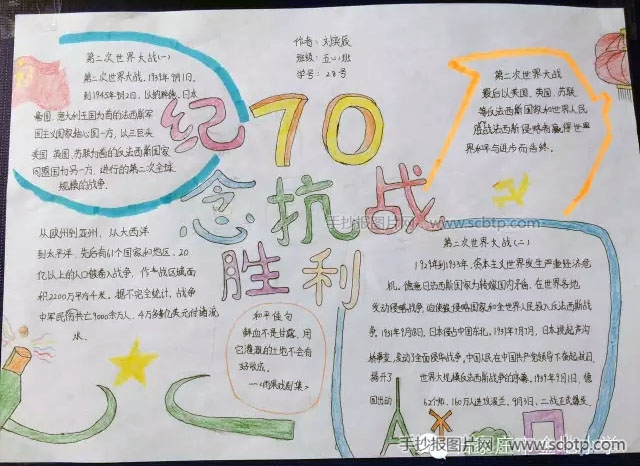 作者：刘奕辰
班级：五(4)班
学号：28号
纪70
念抗战
胜利
第二次世界大战(一)
第二次世界大战，1939年9月1日，
到1945年9月2日，以纳粹德、日本
帝国、意大利王国为首的法西斯军
国主义国家轴心国一方，以三巨头
美国、英国、苏联为首的反法西斯国家
同盟国为另一方，进行的第二次全球
规模的战争。
从欧州到亚州，从大西洋
到太平洋，先后有61个国家和地区、20
亿以上的人口被卷入战争，作战区域面
积2200万平方千米。据不完全统计，战争
中军民伤共亡9000余万人，4万多亿美元付诸流
水。
和平佳句
鲜血不是甘露，用
它灌溉的土地不会有
好收成。
——《雨果戏剧集》
第二次世界大战
最后以美国、英国、苏联
等反法西斯国家和世界人民
战法西斯侵略者赢得世
界和平与进步而告终。
第二次世界大战(二)
1929年到1933年，资本主义世界发生严重经济危
机。德意日法西斯国家为转嫁国内矛盾，在世界各地
发动侵略战争，被侵略国家和全世界人民投入反法西斯战
争。1931年9月18日，日本侵占中国东北。1937年7月7日，日本挑起卢沟
桥事变，发动了全面侵华战争。中国人民在中国共产党领导下奋起抗日，
揭开了 世界大规模反法西斯战争的序幕。1939年9月1日，德
国出动 62个师，160万人进攻波兰。9月3日，二战正式爆发。
手抄报图片网
www.scbtp.com
手抄报图片网 www.scbtp.com